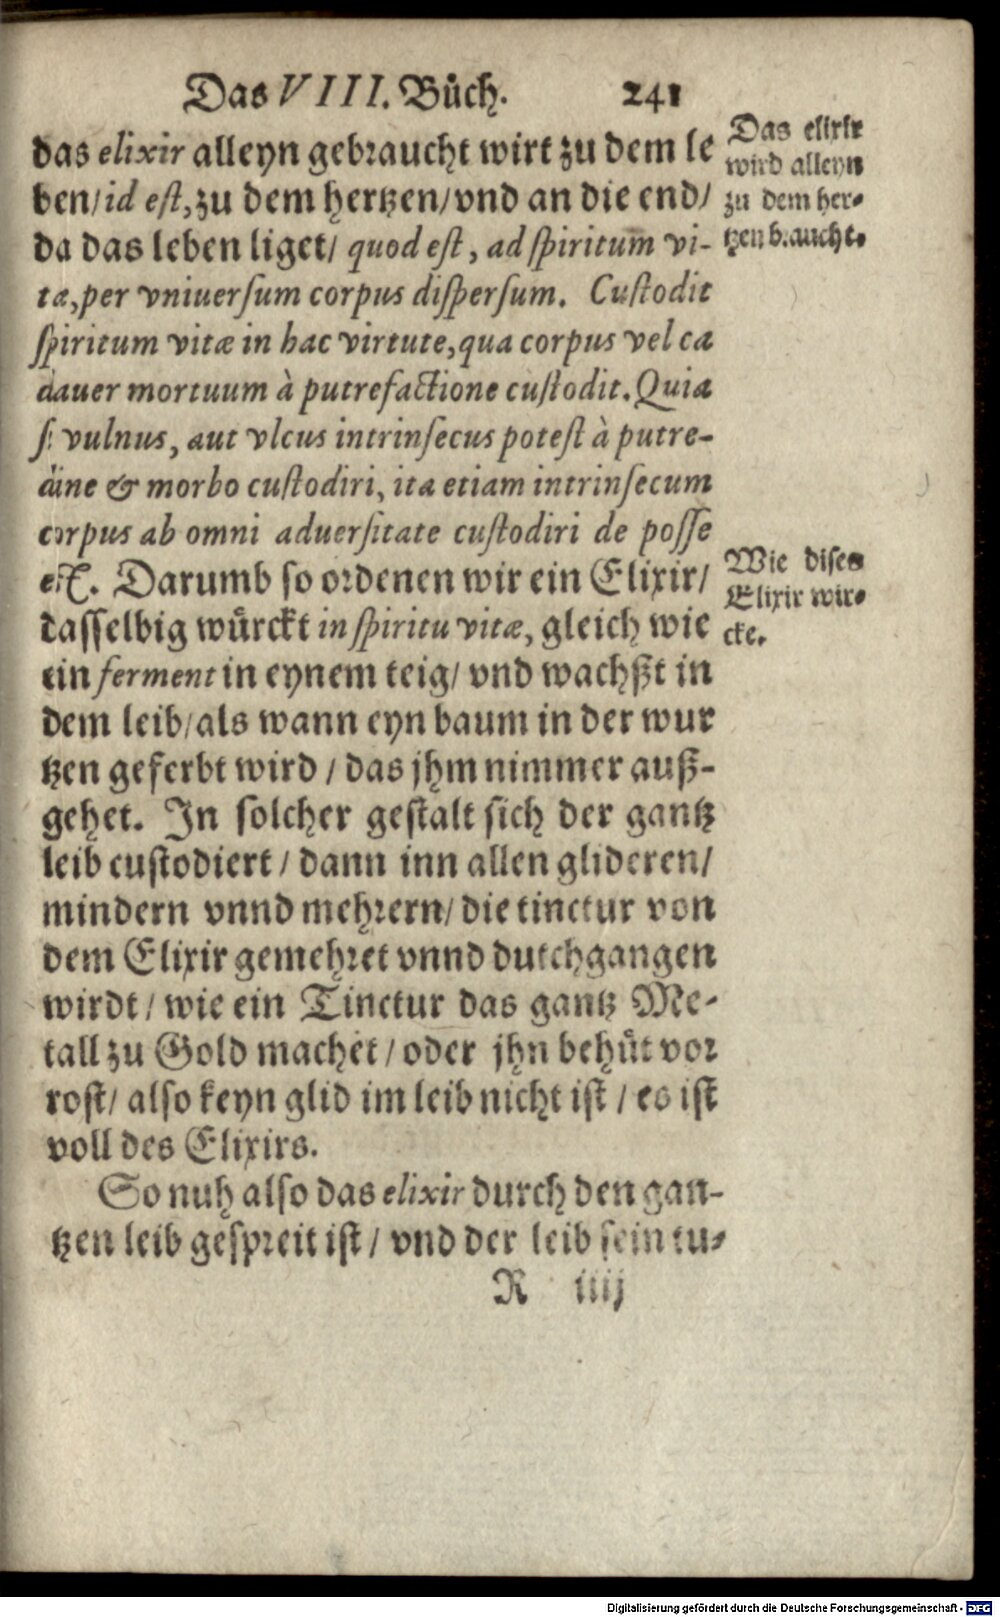 Das VIII. Bůch. 241
das elixir alleyn gebraucht wirt zu dem le
ben/ id est, zu dem hertzen/ vnd an die end/
da das leben liget/ quod est, ad spiritum vi-
tæ, per vniuersum corpus dispersum. Custodit
spiritum vitæ in hac virtute, qua corpus vel ca
dauer mortuum à putrefactione custodit. Quia
si vulnus, aut vlcus intrinsecus potest à putre-
dine & morbo custodiri, ita etiam intrinsecum
corpus ab omni aduersitate custodiri de posse
est. Darumb so ordenen wir ein Elixir/
dasselbig wůrckt in spiritu vitæ, gleich wie
ein ferment in eynem teig/ vnd wachßt in
dem leib/ als wann eyn baum in der wur
tzen geferbt wird / das jhm nimmer auß-
gehet. In solcher gestalt sich der gantz
leib custodiert / dann inn allen glideren/
mindern vnnd mehrern/ die tinctur von
dem Elixir gemehret vnnd dutchgangen
wirdt / wie ein Tinctur das gantz Me-
tall zu Gold machet / oder jhn behůt vor
rost/ also keyn glid im leib nicht ist / es ist
voll des Elixirs.
So nuh also das elixir durch den gan-
tzen leib gespreit ist / vnd der leib sein tu-
R iiij
Das elixir
wird alleyn
zu dem her-
tzen braucht.
Wie dises
Elixir wir-
cke.
Digitalisierung gefördert durch die Deutsche Forschungsgemeinschaft - DFG